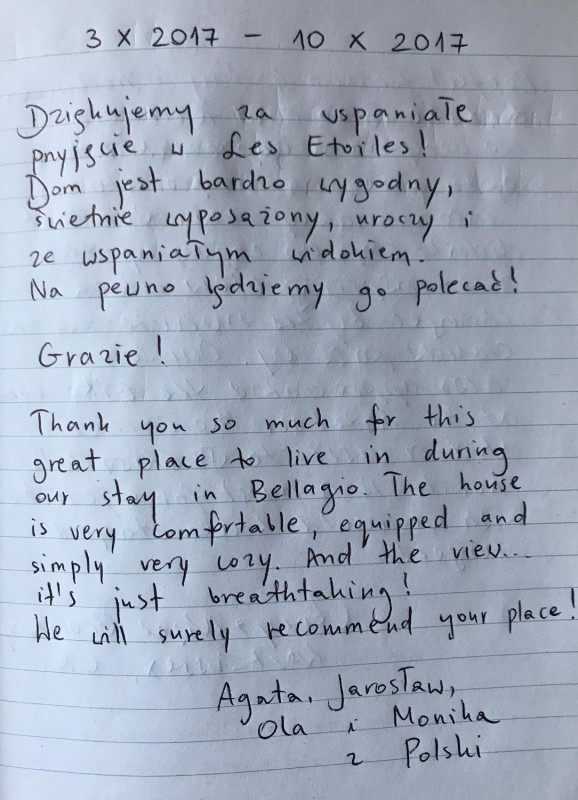 3 X 2017 - 10 X 2017
Dziękujemy za wspaniałe
przyjęcie w Les Etoiles!
Dom jest bardzo wygodny,
świetnie wyposażony, uroczy i
ze wspaniałym widokiem.
Na pewno będziemy go polecać!
Grazie!
Thank you so much for this
great place to live in during
our stay in Bellagio. The house
is very comfortable, equipped and
simply very cozy. And the view...
it's just breathtaking!
We will surely recommend your place!
Agata, Jarosław,
Ola i Monika
z Polski